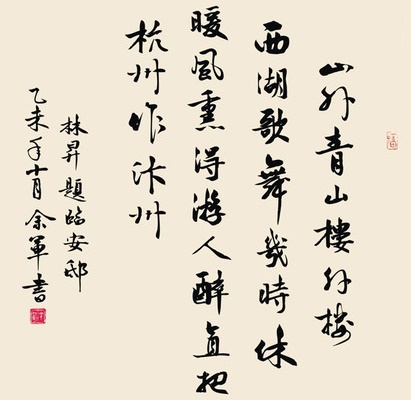 山外青山樓外楼
西湖歌舞幾時休
暖風熏得游人醉直把
杭州作汴州
林昇題臨安邸
乙未年十月余軍書